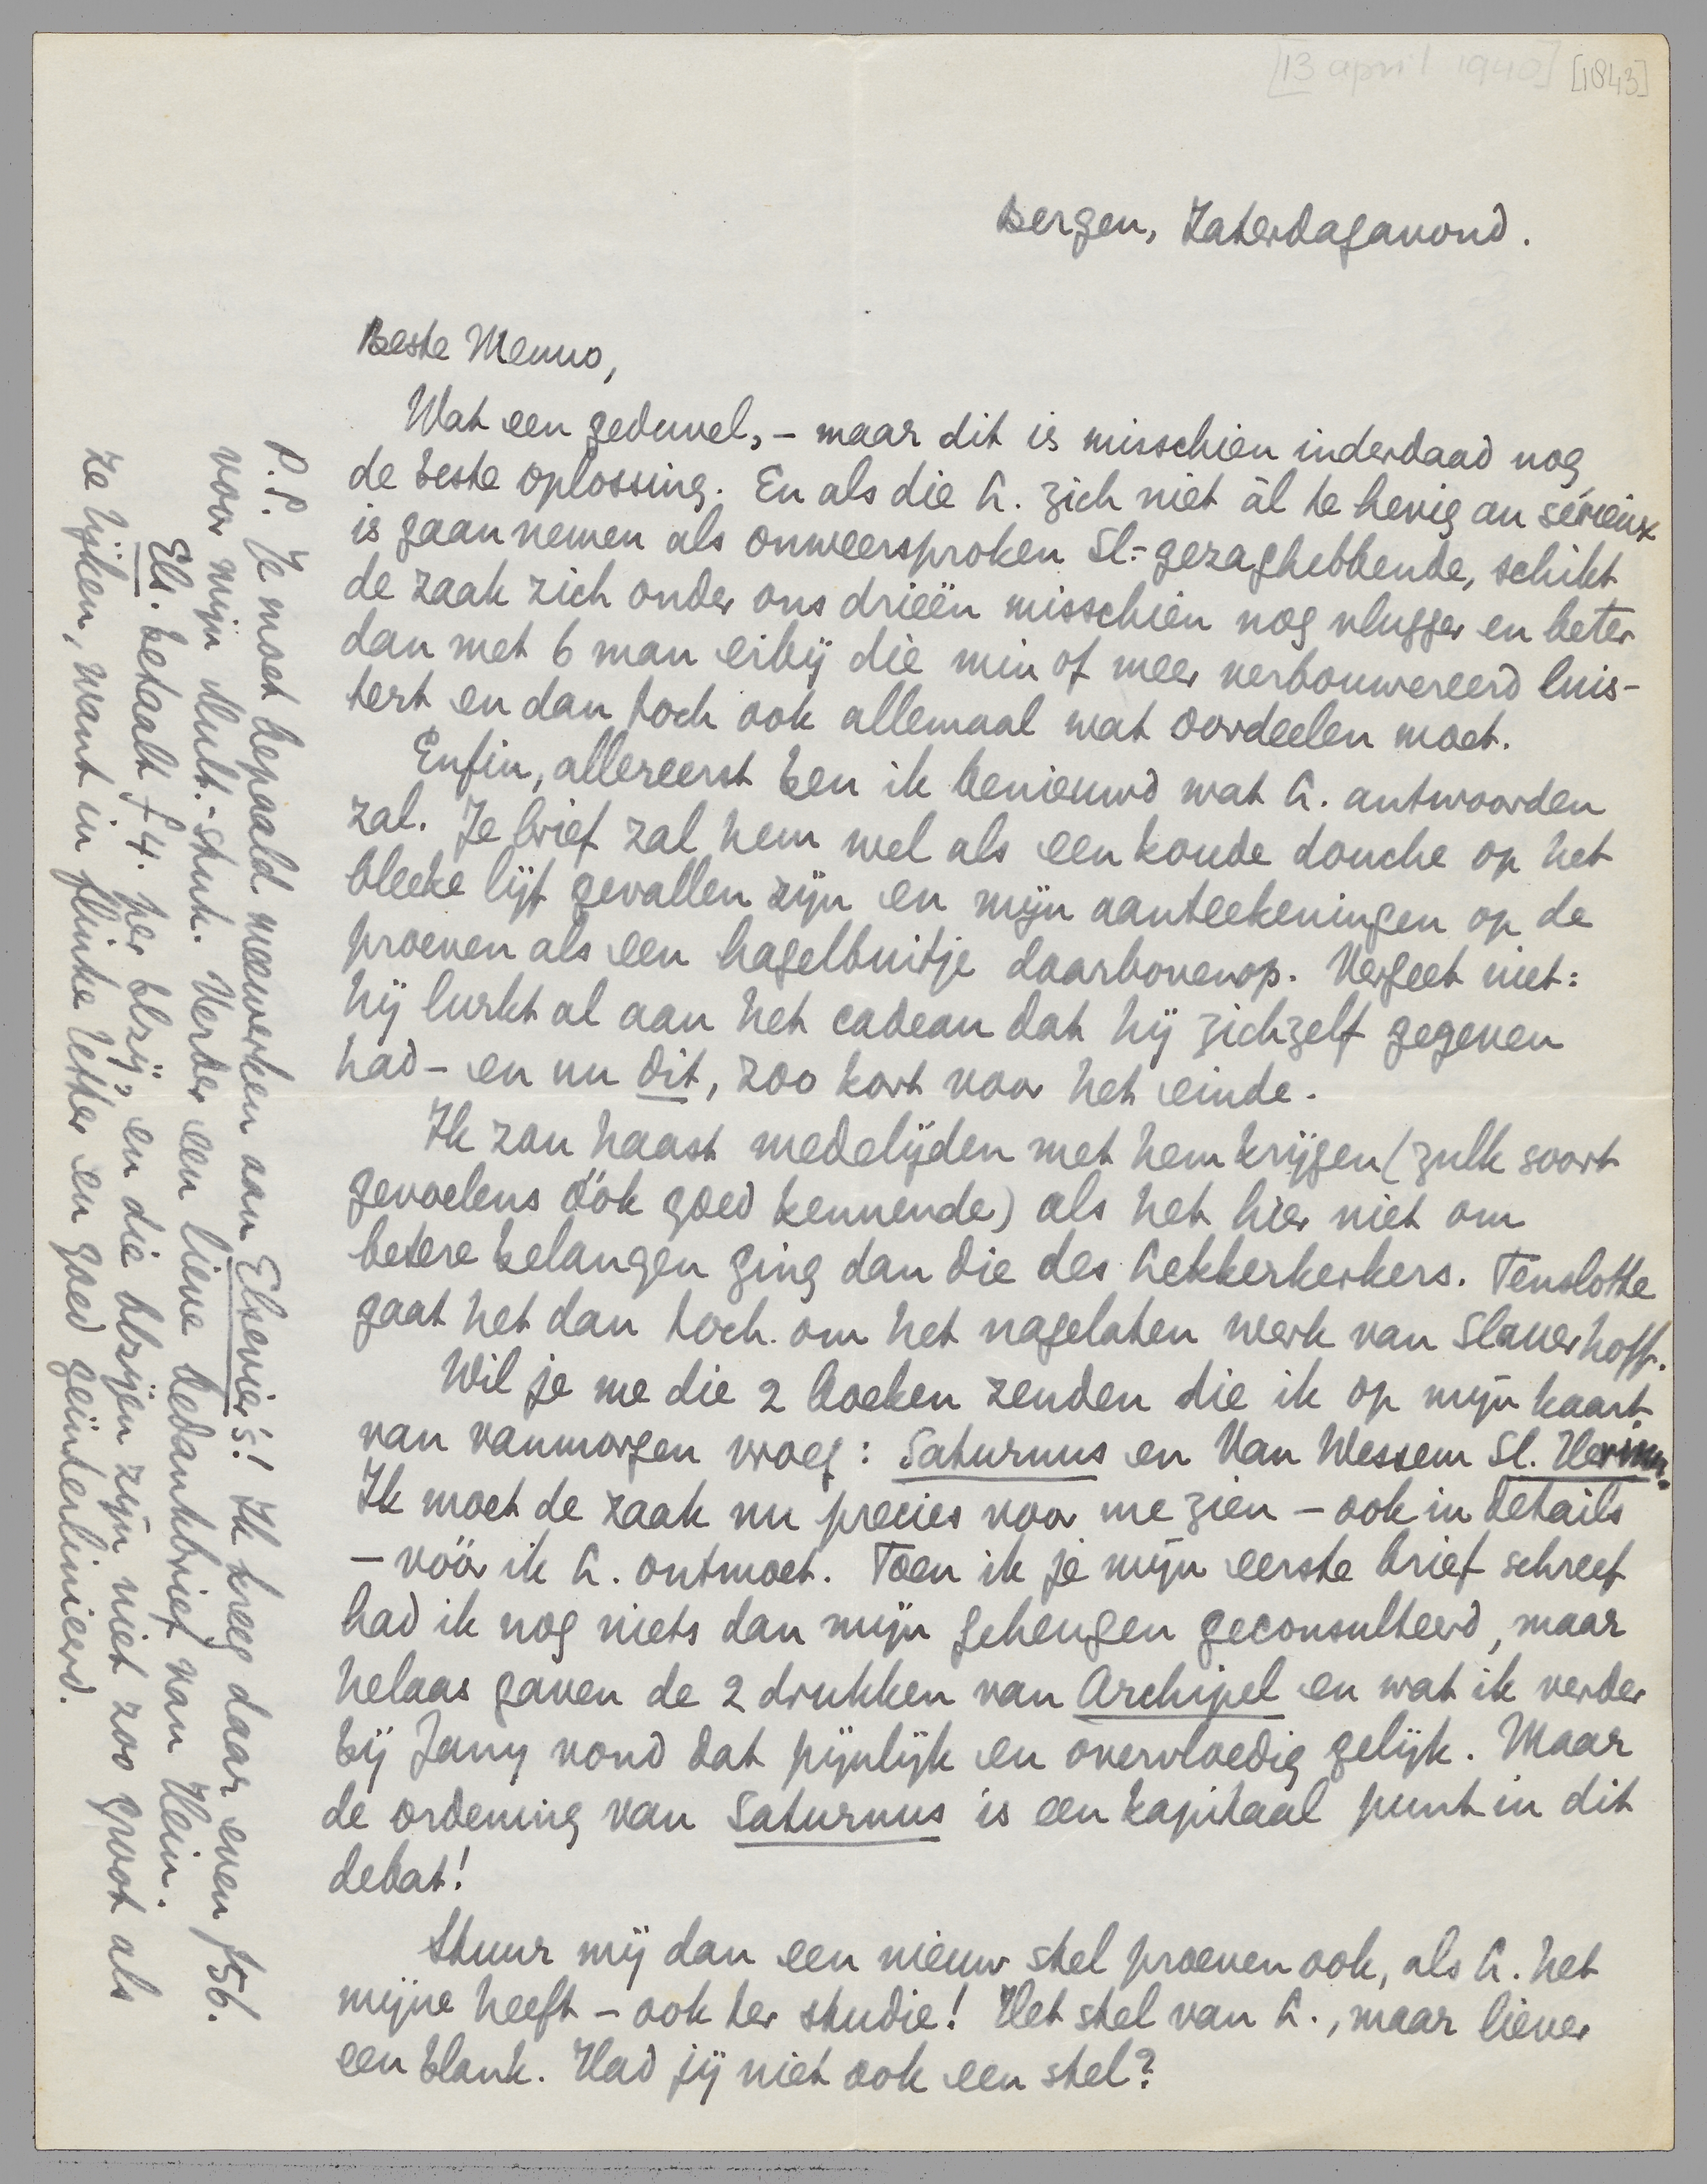 [13 april 1940] [1843]
Bergen, Zaterdagavond.
Beste Menno,
Wat een geduvel, – maar dit is misschien inderdaad nog
de beste oplossing. En als die L. zich niet ál te hevig au sérieux
is gaan nemen als onweersproken Sl.-gezaghebbende, schikt
de zaak zich onder ons drieën misschien nog vlugger en beter
dan met 6 man erbij die min of meer verbouwereerd luis-
tert en dan toch ook allemaal wat oordeelen moet.
Enfin, allereerst ben ik benieuwd wat L. antwoorden
zal. Je brief zal hem wel als een koude douche op het
bleeke lijf gevallen zijn en mijn aanteekeningen op de
proeven als een hagelbuitje daarbovenop. Vergeet niet:
hij lurkt al aan het cadeau dat hij zichzelf gegeven
had – en nu dit, zoo kort voor het einde.
Ik zou haast medelijden met hem krijgen (zulk soort
gevoelens óók goed kennende) als het hier niet om
betere belangen ging dan die des Lekkerkerkers. Tenslotte
gaat het dan toch om het nagelaten werk van Slauerhoff.
Wil je me die 2 boeken zenden die ik op mijn kaart
van vanmorgen vroeg: Saturnus en Van Wessem Sl. Herinn.
Ik moet de zaak nu precies voor me zien – ook in details
– vóór ik L. ontmoet. Toen ik je mijn eerste brief schreef
had ik nog niets dan mijn geheugen geconsulteerd, maar
helaas gaven de 2 drukken van Archipel en wat ik verder
bij Jany vond dat pijnlijk en overvloedig gelijk. Maar
de ordening van Saturnus is een kapitaal punt in dit
debat!
Stuur mij dan een nieuw stel proeven ook, als L. het
mijne heeft – ook ter studie! Het stel van L., maar liever
een blank. Had jij niet ook een stel?
P.S. Je moet bepaald meewerken aan Elsevier's! Ik kreeg daar even f 56.
voor mijn Mult.-stuk. Verder een lieve bedankbrief van Hein.
Els. betaalt f 4. per blzij, en die blzijen zijn niet zoo groot als
ze lijken, want in flinke letter en goed geïnterlinieerd.